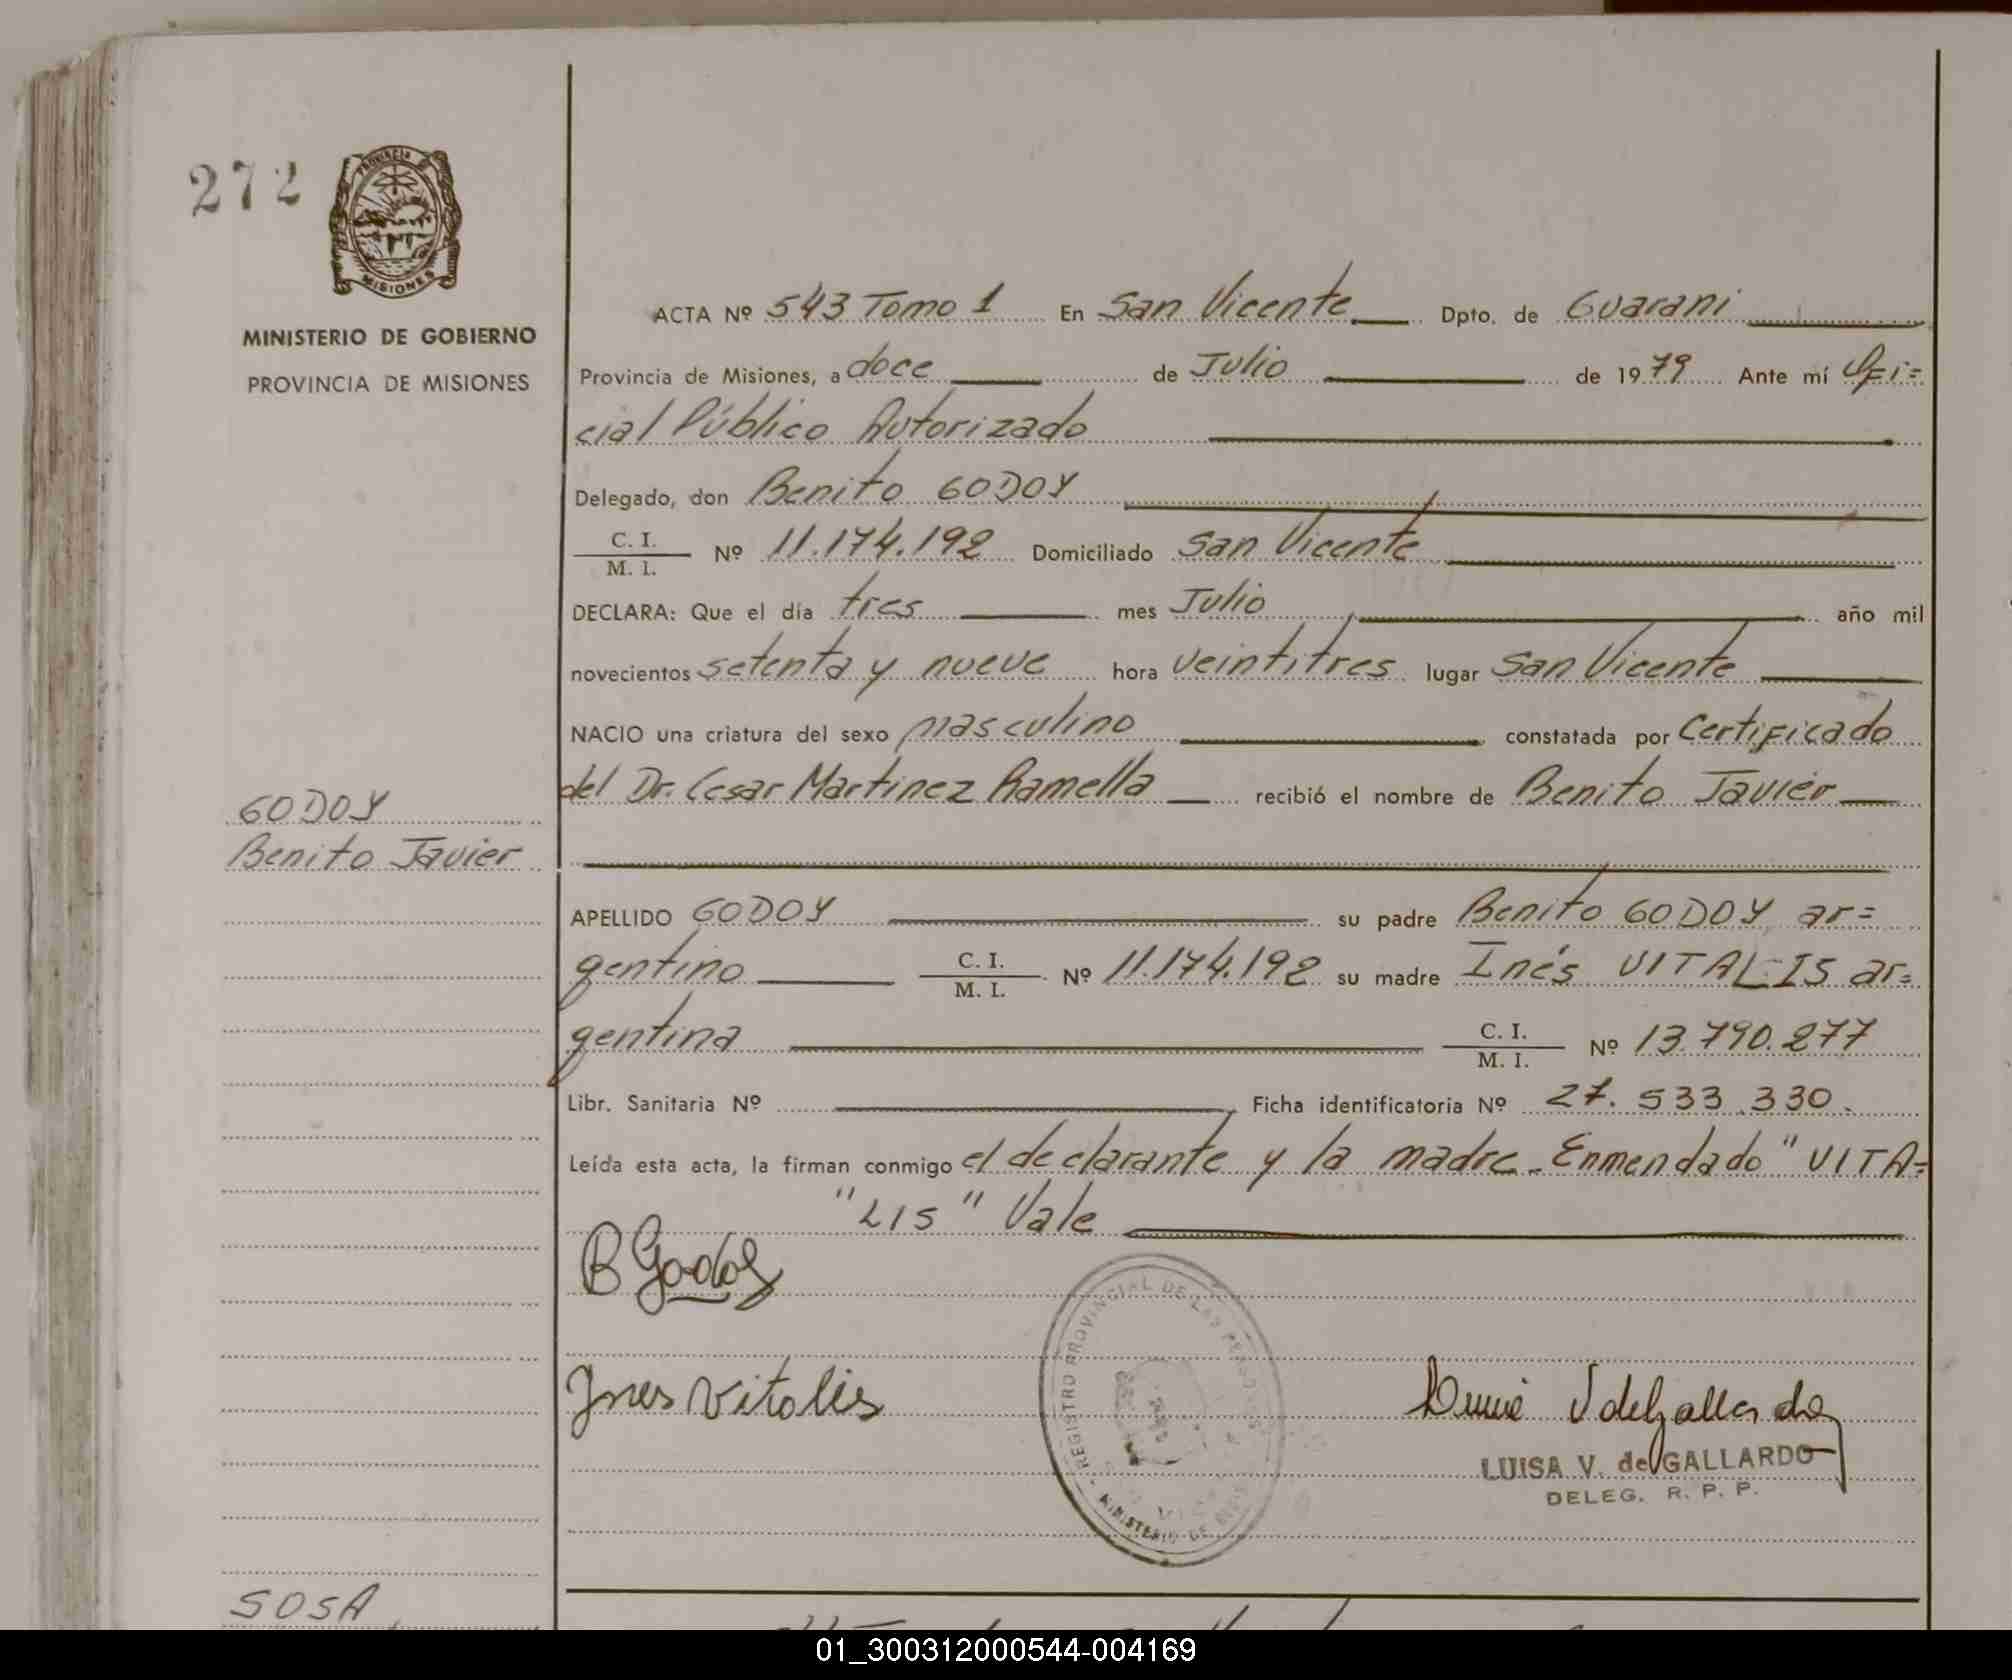 272
PROVINCIA DE
MISIONES
MINISTERIO DE GOBIERNO
PROVINCIA DE MISIONES
ACTA Nº 543 Tomo 1 En San Vicente Dpto. de Guarani
Provincia de Misiones, a doce de Julio de 1979 Ante mí Ofi=
cial Público Autorizado
Delegado, don Benito GODOY
C. I.
M. I.
Nº 11.174.192 Domiciliado San Vicente
DECLARA: Que el día tres mes Julio año mil
novecientos setenta y nueve hora veintitres lugar San Vicente
NACIO una criatura del sexo masculino constatada por Certificado
del Dr. Cesar Martinez Ramella recibió el nombre de Benito Javier
GODOY
Benito Javier
APELLIDO GODOY su padre Benito GODOY ar=
gentino C. I. M. I. Nº 11.174.192 su madre Inés VITALIS ar=
gentina C. I. M. I. Nº 13.790.277
Libr. Sanitaria Nº Ficha identificatoria Nº 27.533.330.
Leída esta acta, la firman conmigo el declarante y la madre. Enmendado "VITA=
"LIS" Vale
B Godoy
REGISTRO PROVINCIAL DE LAS PERSONAS
MINISTERIO DE
Ines Vitalis
LUISA V. de GALLARDO
DELEG. R. P. P.
SOSA
01_300312000544-004169